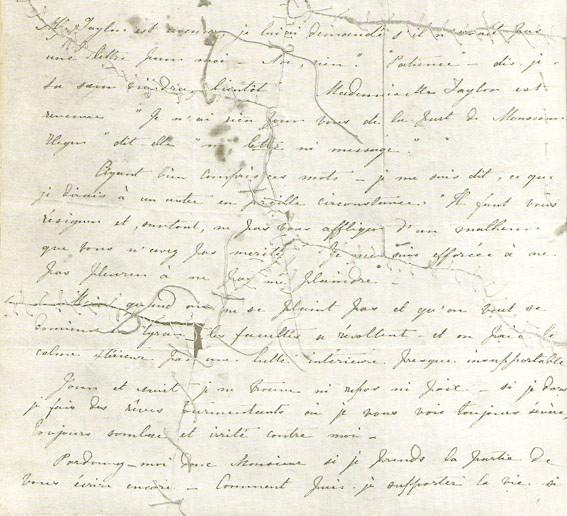 Mr Taylor est revenu, je lui ai demandé s'il n'avait pas
une lettre pour moi – "Non, rien." "Patience" – dis-je –
"sa sœur viendra bientôt" – Mademoiselle Taylor est
revenue "Je n'ai rien pour vous de la part de Monsieur
Heger" dit-elle "ni lettre ni message."
Ayant bien compris ces mots – je me suis dit, ce que
je dirais à un autre en pareille circonstance "Il faut vous
résigner et, surtout, ne pas vous affliger d'un malheur
que vous n'avez pas mérité" Je me suis efforcée à ne
pas pleurer à ne pas me plaindre –
Mais quand on ne se plaint pas et qu'on veut se
dominer en tyran – les facultés se révoltent – et on paie le
calme extérieur par une lutte intérieure presque insupportable
Jour et nuit je ne trouve ni repos ni paix – si je dors
je fais des rêves tourmentants où je vous vois toujours sévère,
toujours sombre et irrité contre moi –
Pardonnez-moi donc Monsieur si je prends la partie de
vous écrire encore – Comment puis-je supporter la vie si